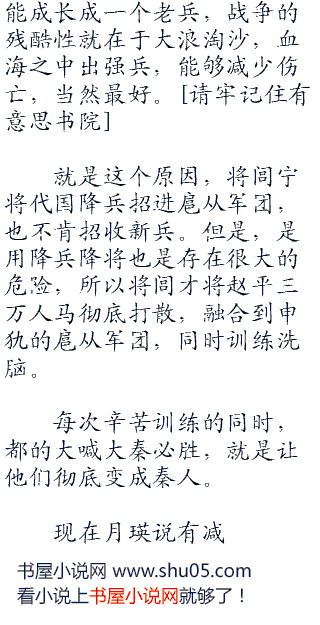 能成长成一个老兵，战争的
残酷性就在于大浪淘沙，血
海之中出强兵，能够减少伤
亡，当然最好。[请牢记住有
意思书院]
就是这个原因，将闾宁
将代国降兵招进扈从军团，
也不肯招收新兵。但是，是
用降兵降将也是存在很大的
危险，所以将闾才将赵平三
万人马彻底打散，融合到申
犰的扈从军团，同时训练洗
脑。
每次辛苦训练的同时，
都的大喊大秦必胜，就是让
他们彻底变成秦人。
现在月瑛说有减
书屋小说网 www.shu05.com
看小说上书屋小说网就够了！